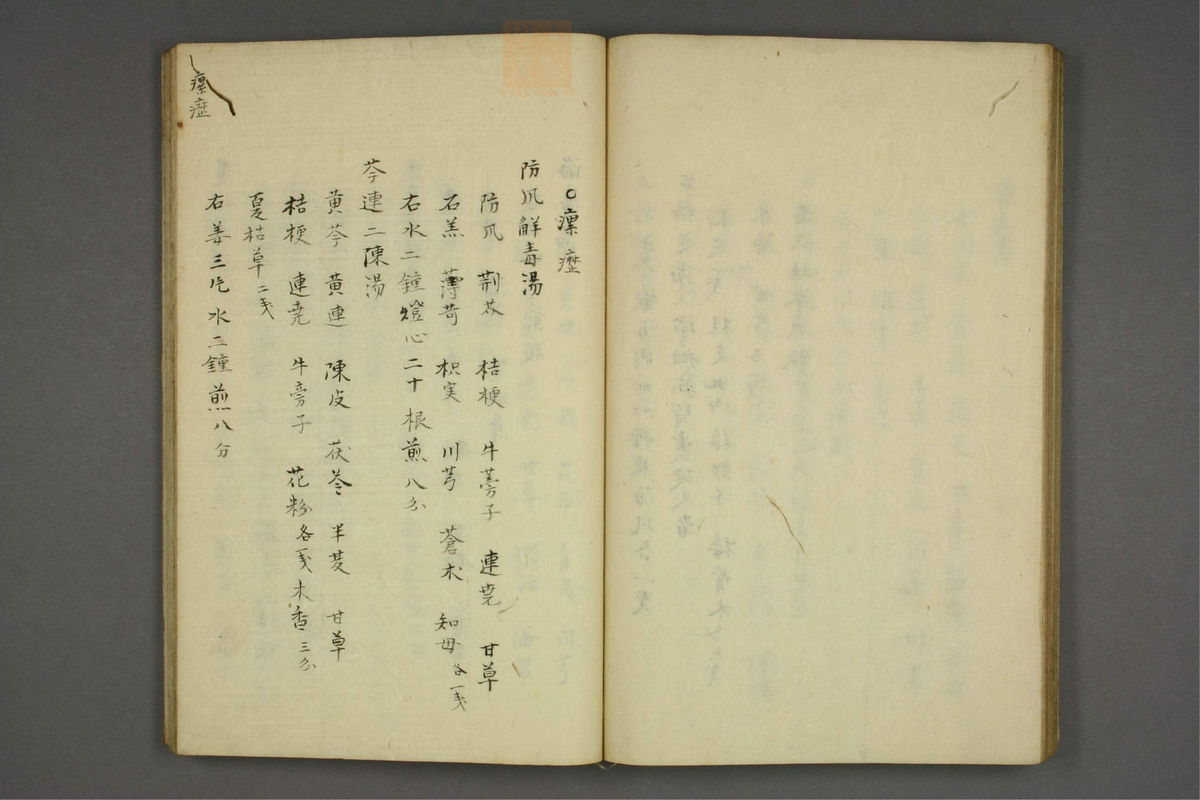 ○瘰癧
防风解毒湯
防风 荆芥 桔梗 牛蒡子 連堯 甘草
石羔 薄苛 枳实 川芎 蒼术 知母各一戋
右水二鐘燈心二十根煎八分
芩連二陳湯
黄芩 黄連 陳皮 茯苓 半夏 甘草
桔梗 連堯 牛旁子 花粉各一戋木香三分
夏枯草二戋
右姜三片水二鐘煎八分
瘰癧